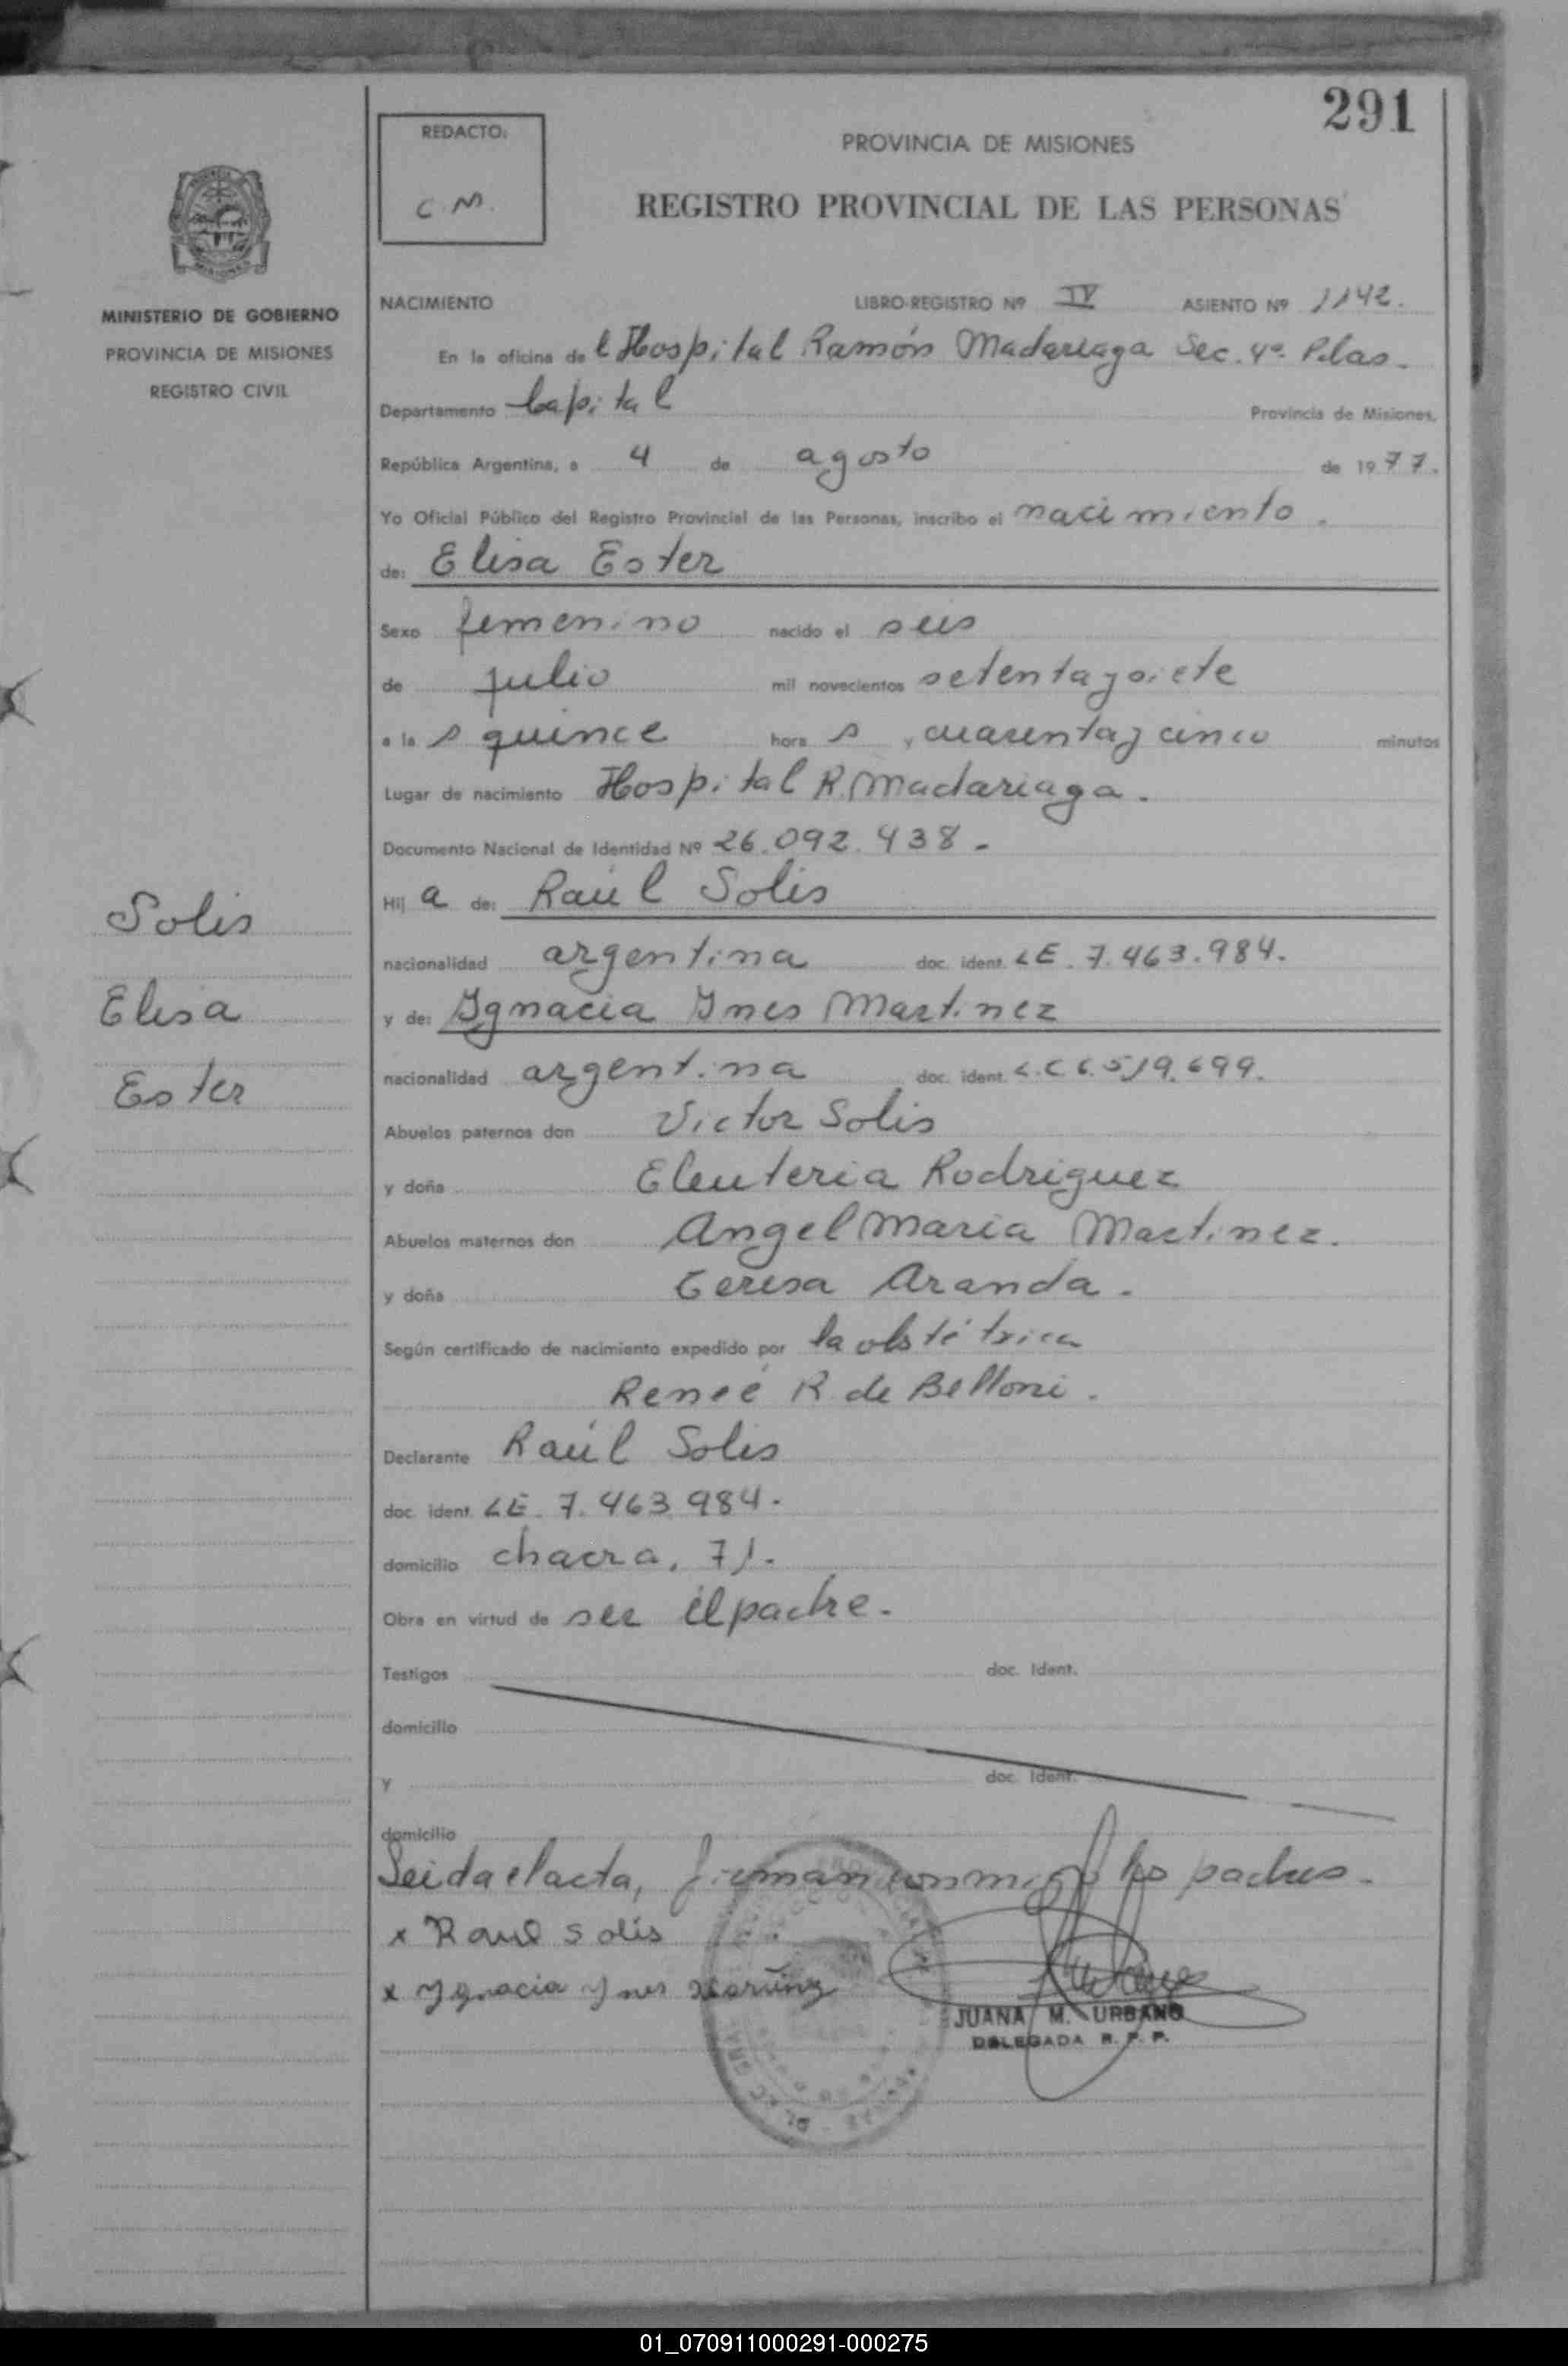 291
REDACTO:
C.M.
PROVINCIA DE MISIONES
REGISTRO PROVINCIAL DE LAS PERSONAS
MINISTERIO DE GOBIERNO
PROVINCIA DE MISIONES
REGISTRO CIVIL
NACIMIENTO LIBRO-REGISTRO Nº IV ASIENTO Nº 1142.
En la oficina de l Hospital Ramón Madariaga Sec. 4ª. Pdas.
Departamento Capital Provincia de Misiones,
República Argentina, a 4 de agosto de 1977.
Yo Oficial Público del Registro Provincial de las Personas, inscribo el nacimiento.
de: Elisa Ester
Sexo femenino nacido el seis
de julio mil novecientos setenta y siete
a la s quince hora s y cuarenta y cinco minutos
Lugar de nacimiento Hospital R. Madariaga.
Documento Nacional de Identidad Nº 26.092.438-
Hij a de: Raúl Solis
nacionalidad argentina doc. ident. LE. 7.463.984.
y de: Ygnacia Ynes Martinez
nacionalidad argentina doc. ident. L.C 6.519.699.
Abuelos paternos don Victor Solis
y doña Eleuteria Rodriguez
Abuelos maternos don Angel Maria Martinez.
y doña Teresa Aranda.
Según certificado de nacimiento expedido por la obstétrica
Reneé R de Belloni.
Declarante Raúl Solis
doc. ident. LE. 7.463.984.
domicilio chacra, 71.
Obra en virtud de ser el padre.
Testigos doc. Ident.
domicilio
y doc. Ident.
domicilio
Leida el acta, firman conmigo los padres.
x Raul Solis
x Ygnacia Ynes Martinez
JUANA M. URBANO
DELEGADA R. P. P.
Solis
Elisa
Ester
01_070911000291-000275